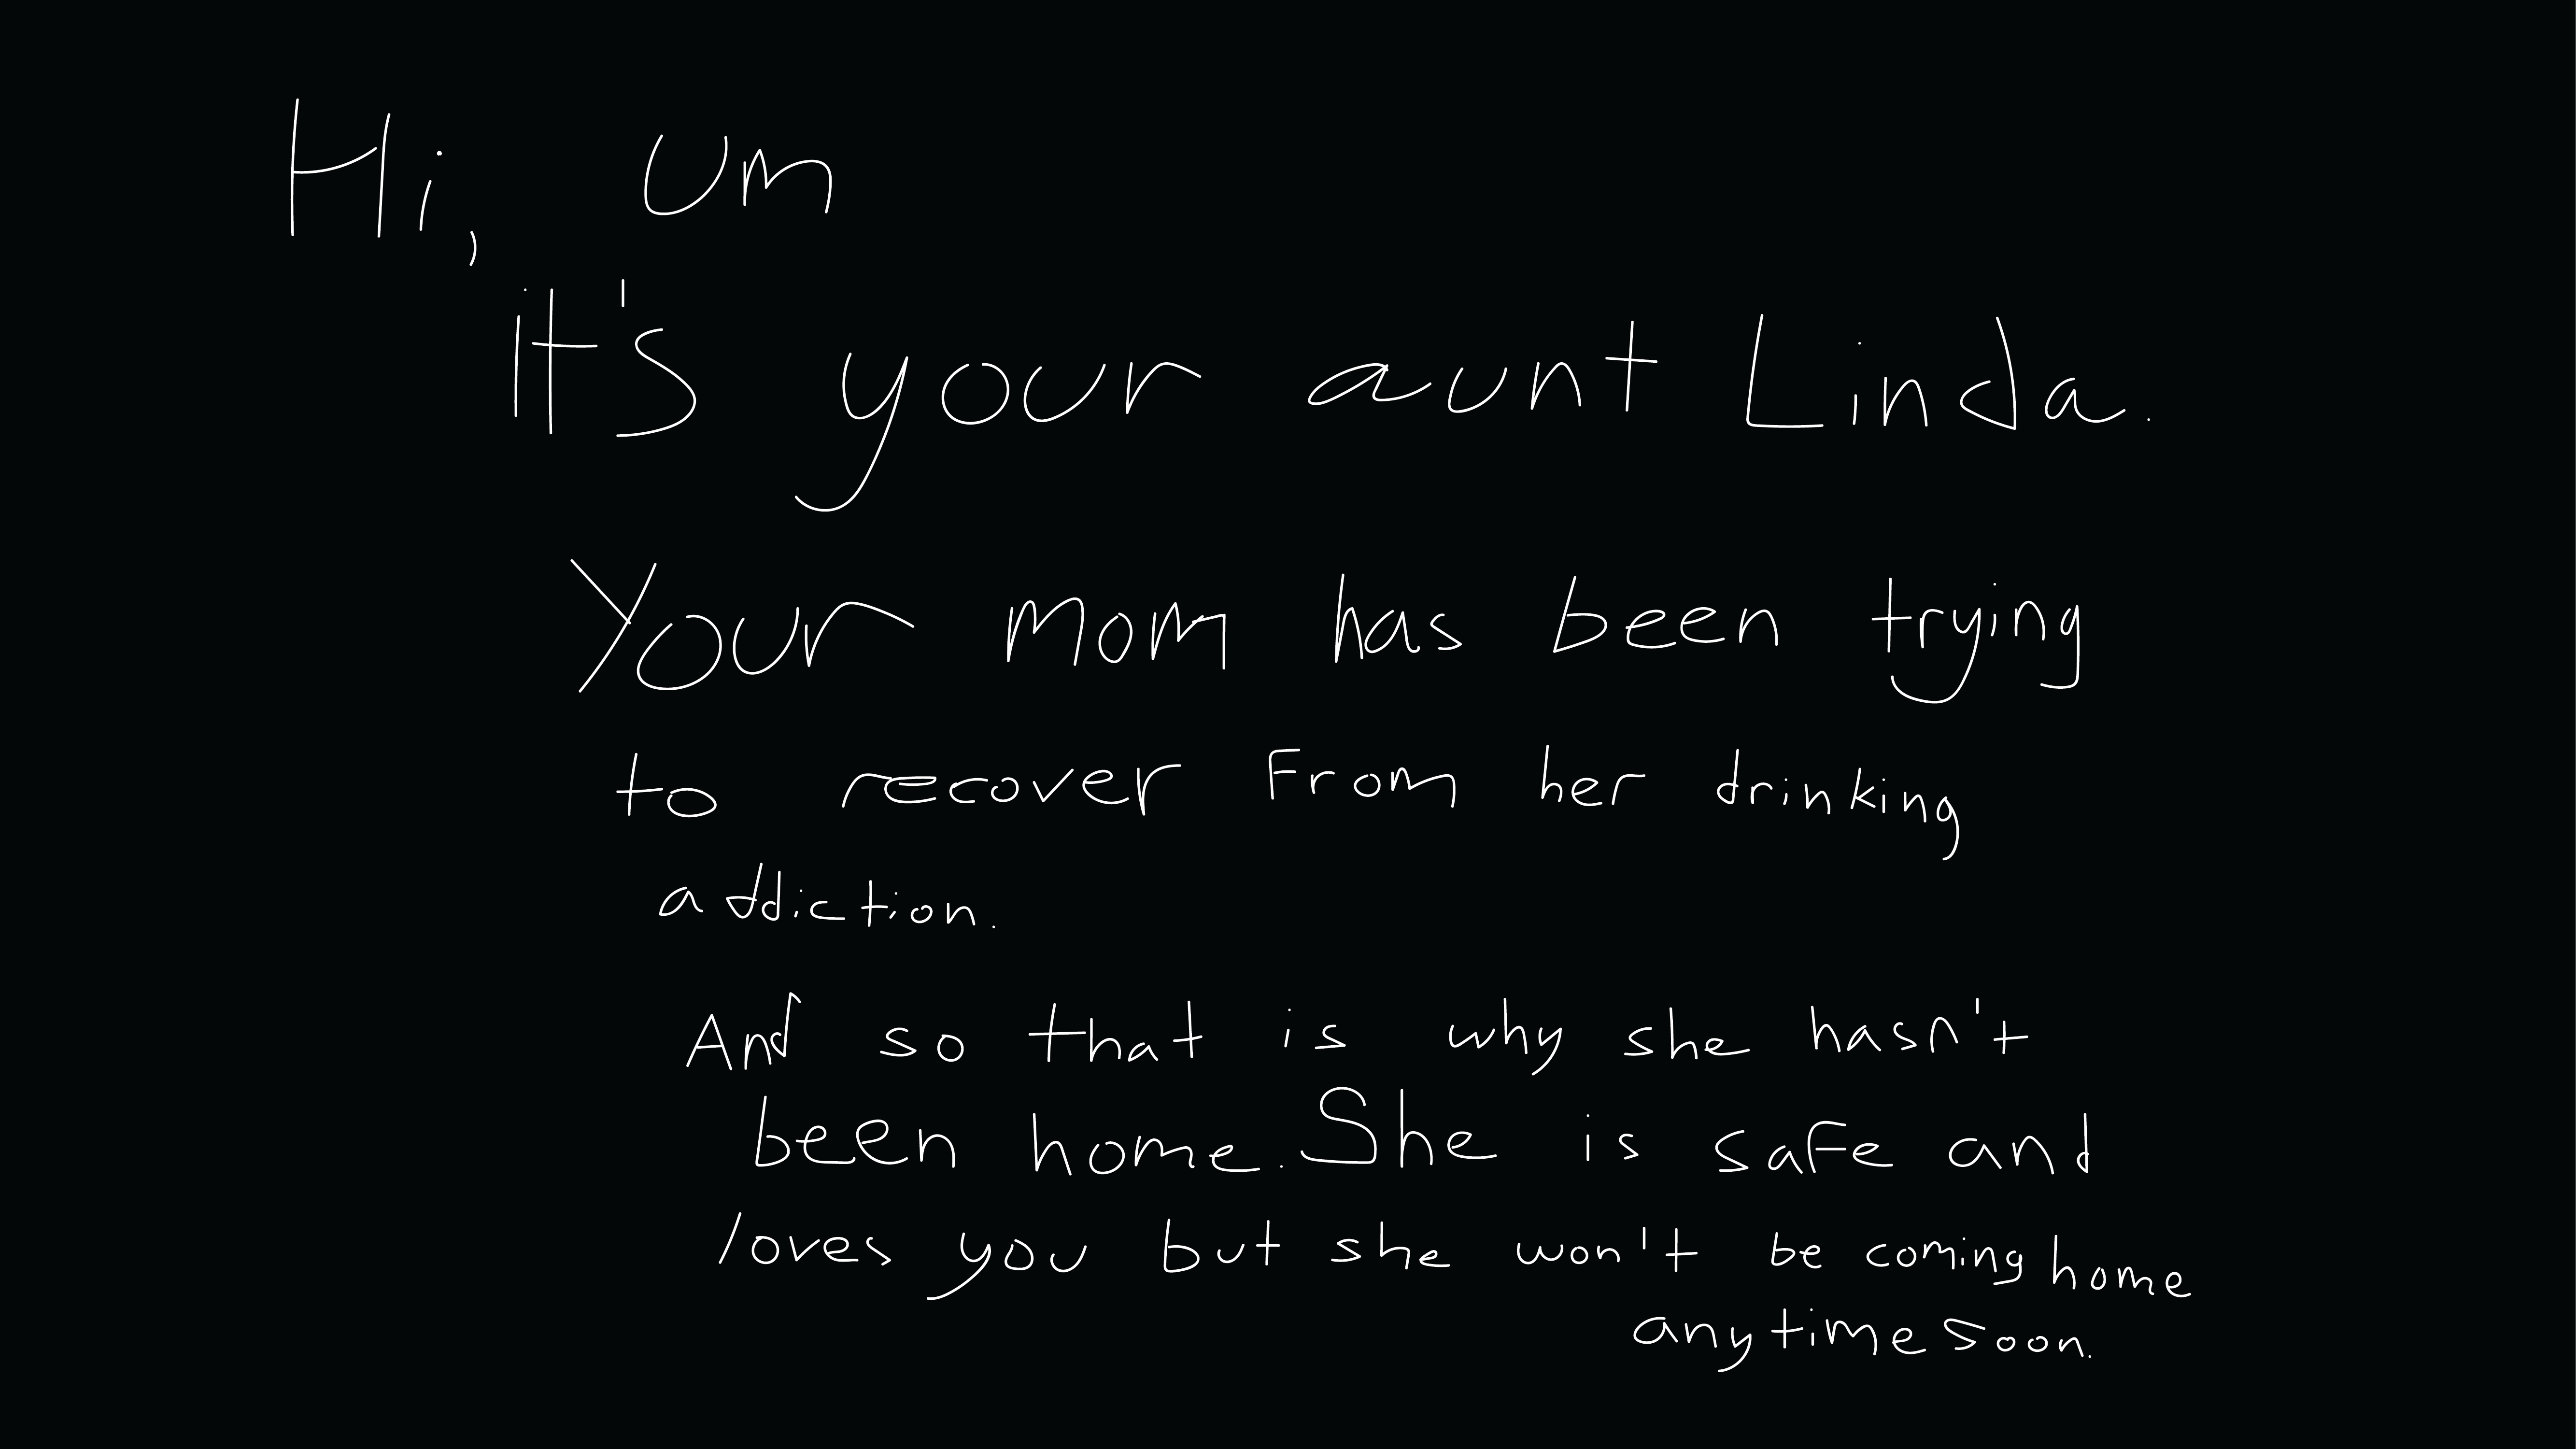 Hi, um
it's your aunt Linda.
Your mom has been trying
to recover from her drinking
addiction.
And so that is why she hasn't
been home. She is safe and
loves you but she won't be coming home
anytime soon.